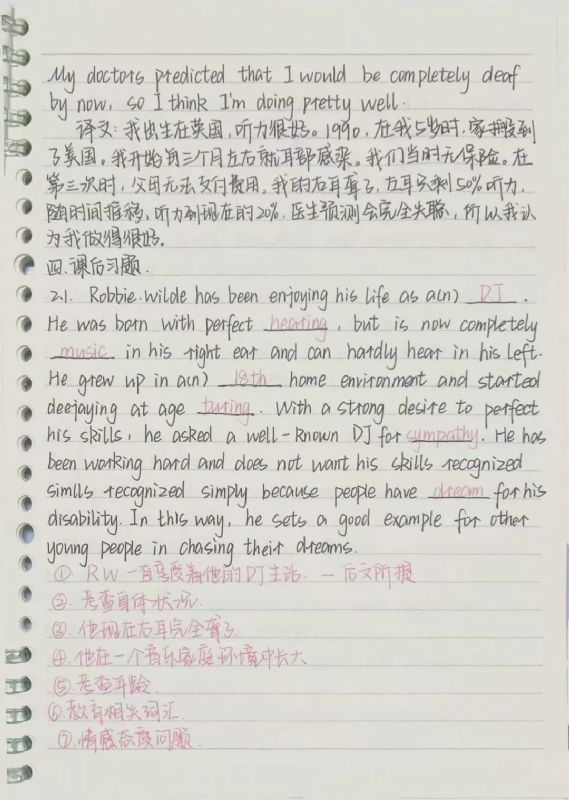 My doctors predicted that I would be completely deaf
by now, so I think I'm doing pretty well.
译文:我出生在英国,听力很好。1990,在我5岁时,家搬到
了美国。我开始每三个月左右就耳部感染。我们当时无保险。在
第三次时,父母无法支付费用。我的右耳聋了,左耳只剩50%听力,
随时间推移,听力到现在的20%,医生预测会完全失聪,所以我认
为我做得很好。
四.课后习题.
2.1. Robbie.wilde has been enjoying his life as a(n) DJ .
He was born with perfect hearing , but is now completely
music in his right ear and can hardly hear in his left.
He grew up in a(n) 18th home environment and started
deejaying at age turing . With a strong desire to perfect
his skills, he asked a well-known DJ for sympathy. He has
been working hard and does not want his skills recognized
simlls recognized simply because people have dream for his
disability. In this way, he sets a good example for other
young people in chasing their dreams.
① RW 一直享受着他的DJ生活. — 后文所提
②.考查身体状况.
③.他现在右耳完全聋了
④.他在一个音乐家庭环境中长大
⑤.考查年龄.
⑥.教育相关词汇.
⑦.情感态度问题.